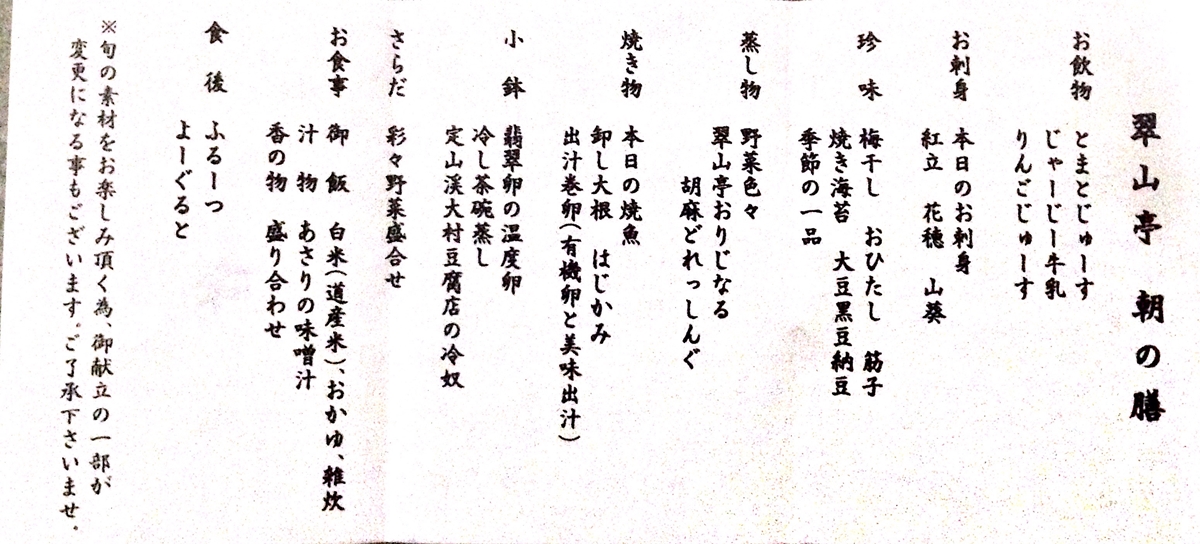 翠山亭 朝の膳
お飲物 とまとじゅーす
じゃーじー牛乳
りんごじゅーす
お刺身 本日のお刺身
紅立 花穂 山葵
珍味 梅干し おひたし 筋子
焼き海苔 大豆黒豆納豆
季節の一品
蒸し物 野菜色々
翠山亭おりじなる
胡麻どれっしんぐ
焼き物 本日の焼魚
卸し大根 はじかみ
出汁巻卵(有機卵と美味出汁)
小鉢 翡翠卵の温度卵
冷し茶碗蒸し
定山渓大村豆腐店の冷奴
さらだ 彩々野菜盛合せ
お食事 御飯 白米(道産米)、おかゆ、雑炊
汁物 あさりの味噌汁
香の物 盛り合わせ
食後 ふるーつ
よーぐると
※旬の素材をお楽しみ頂く為、御献立の一部が
変更になる事もございます。ご了承下さいませ。